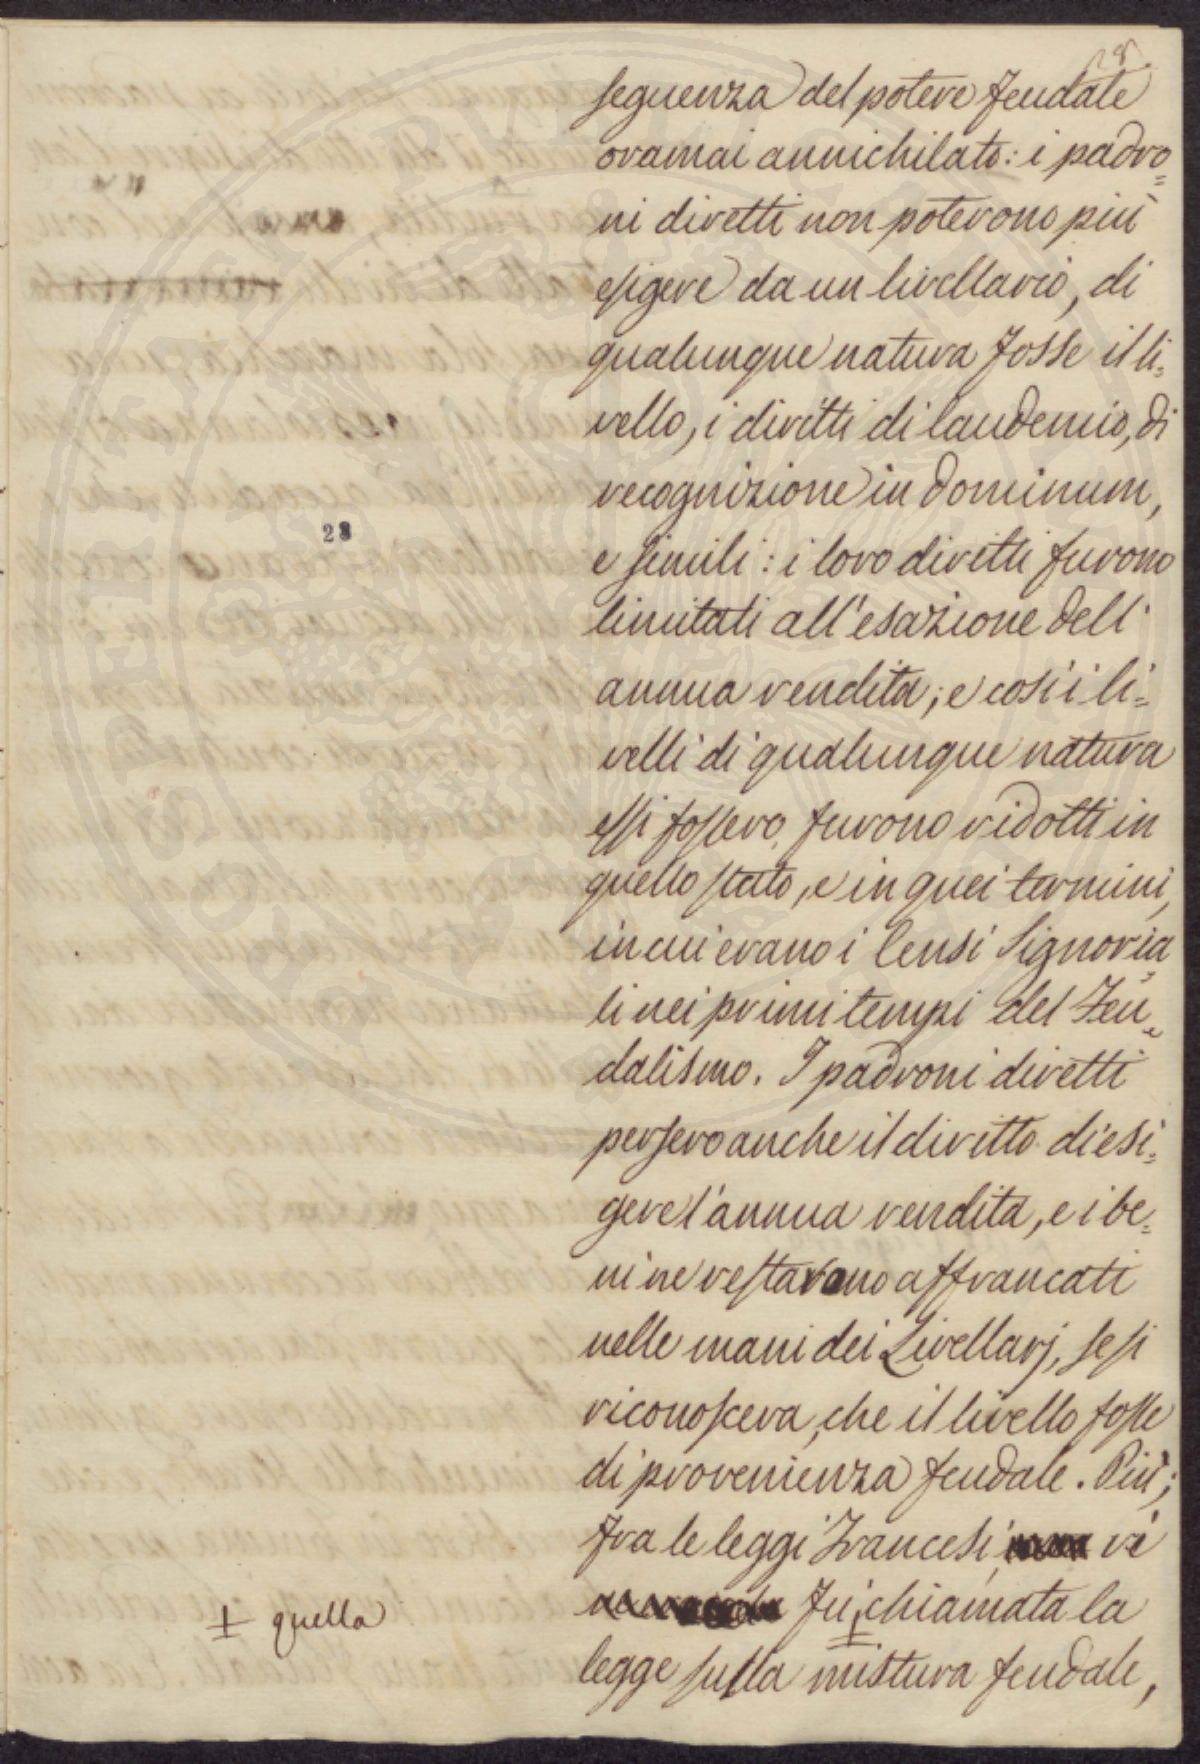 28.
seguenza del potere feudale
oramai annichilato: i padro=
ni diretti non poterono più
esigere da un livellario, di
qualunque natura fosse il li=
vello, i diritti di laudemio, di
recognizione in dominum,
e simili: i loro diritti furono
limitati all'esazione dell'
annua rendita; e così i li=
velli di qualunque natura
essi fossero, furono ridotti in
quello stato, e in quei termini,
in cui erano i Censi Signoria
li nei primi tempi del Feu=
dalismo. I padroni diretti
persero anche il diritto di esi=
gere l'annua rendita, e i be=
ni ne restarono affrancati
nelle mani dei Livellarj, se si
riconosceva, che il livello fosse
di provenienza feudale. Più;
fra le leggi Francesi, vi
fu, chiamata la
legge sulla mistura feudale,
28
± quella